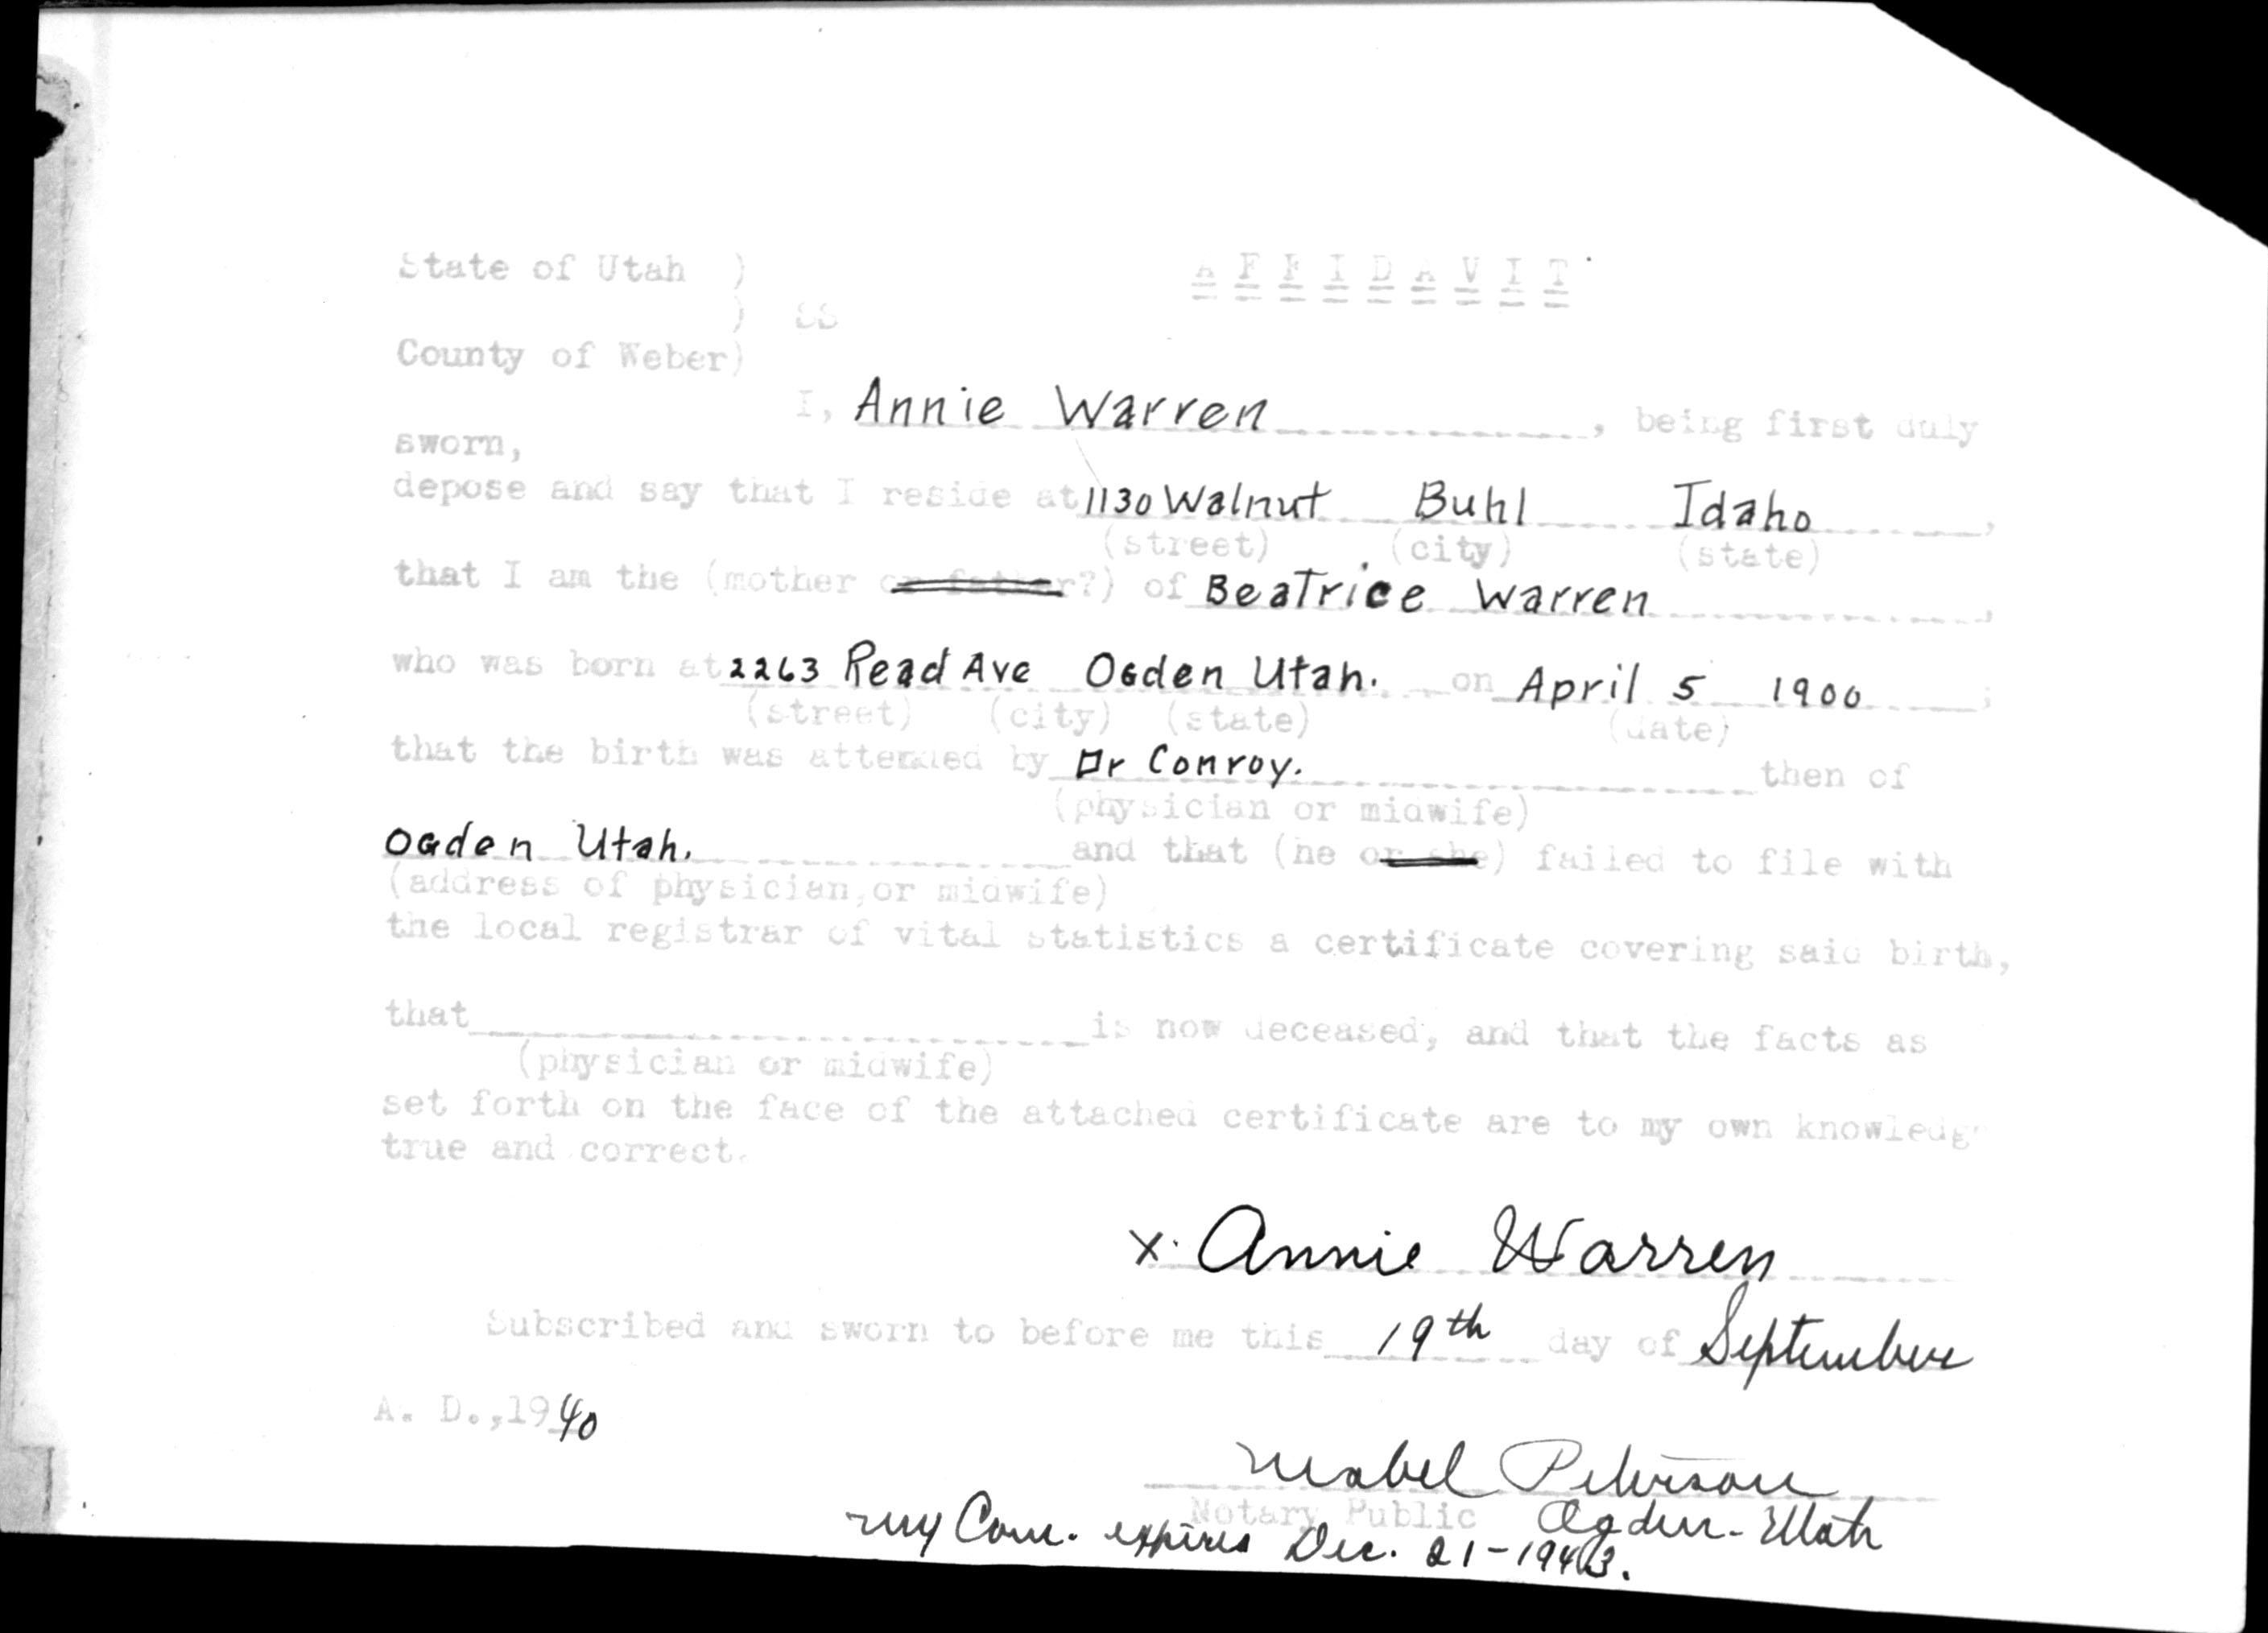 State of Utah )
A F F I D A V I T
) SS
County of Weber)
I, Annie Warren, being first duly
sworn,
depose and say that I reside at 1130 Walnut Buhl Idaho,
(street) (city) (state)
that I am the (mother or father?) of Beatrice Warren,
who was born at 2263 Read Ave Ogden Utah. on April 5 1900;
(street) (city) (state) (date)
that the birth was attended by Dr Conroy. then of
(physician or midwife)
Ogden Utah. and that (he or she) failed to file with
(address of physician, or midwife)
the local registrar of vital statistics a certificate covering said birth,
that is now deceased, and that the facts as
(physician or midwife)
set forth on the face of the attached certificate are to my own knowledg
true and correct.
x. Annie Warren
Subscribed and sworn to before me this 19th day of September
A. D.,1940
Mabel Peterson
Notary Public Ogden-Utah
My Com. expires Dec. 21-1943.